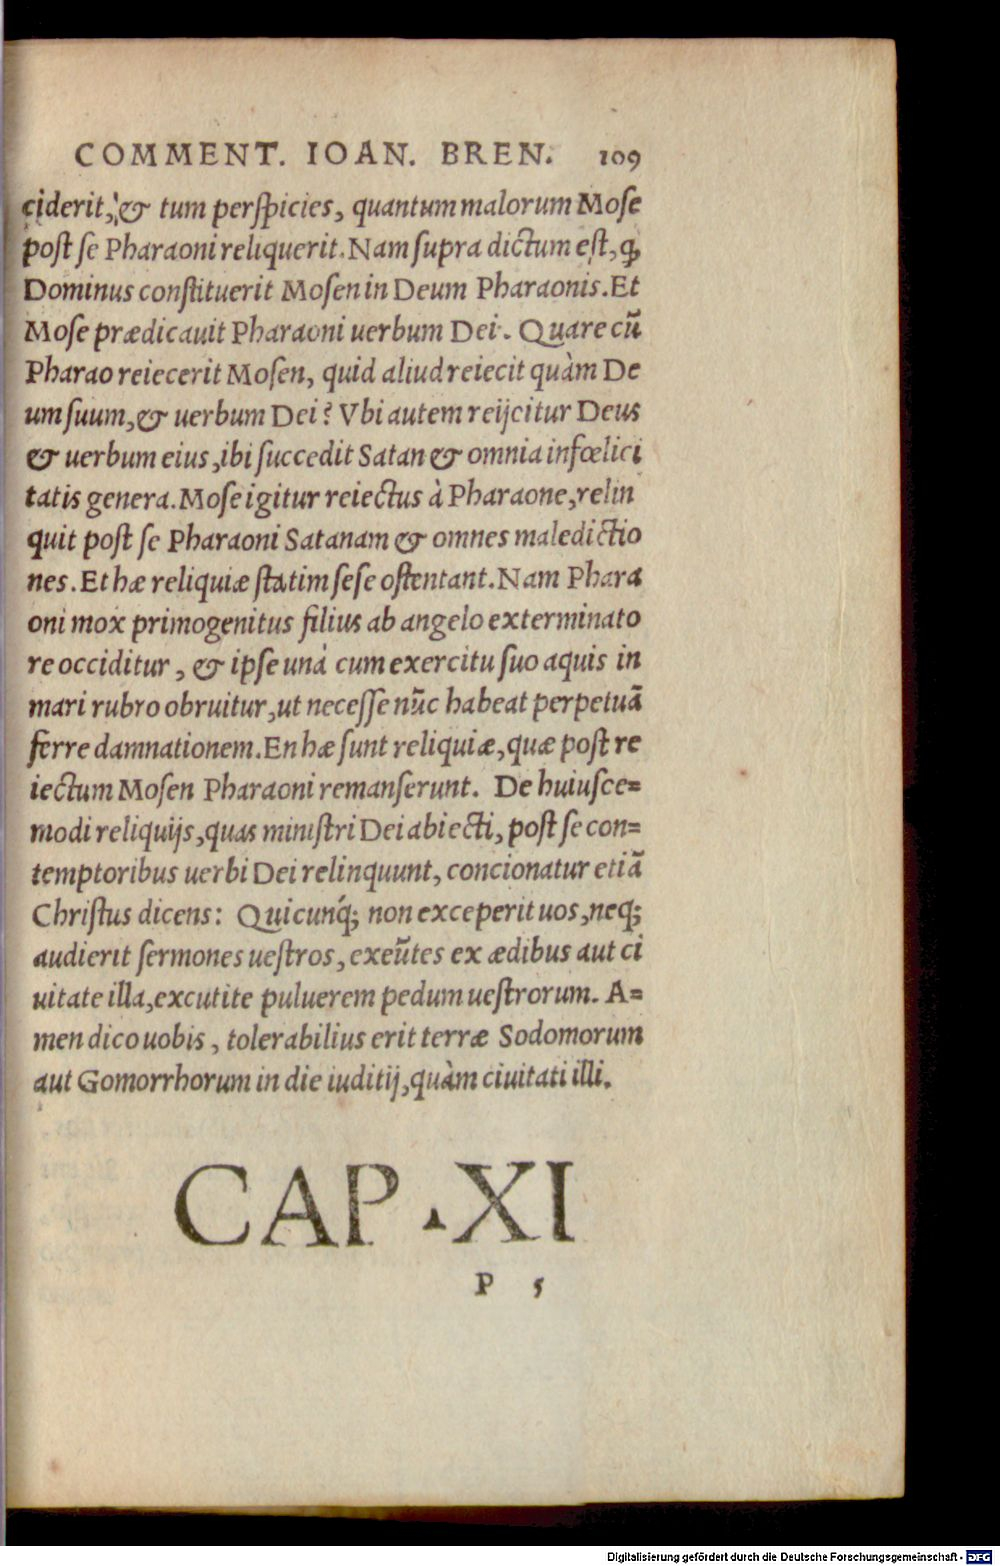 COMMENT. IOAN. BREN. 109
ciderit, & tum perſpicies, quantum malorum Moſe
poſt ſe Pharaoni reliquerit. Nam ſupra dictum eſt, ꝙ
Dominus conſtituerit Moſen in Deum Pharaonis. Et
Moſe prædicauit Pharaoni uerbum Dei. Quare cũ
Pharao reiecerit Moſen, quid aliud reiecit quàm De
um ſuum, & uerbum Dei? Vbi autem reijcitur Deus
& uerbum eius, ibi ſuccedit Satan & omnia infœlici
tatis genera. Moſe igitur reiectus à Pharaone, relin
quit poſt ſe Pharaoni Satanam & omnes maledictio
nes. Et hæ reliquiæ ſtatim ſeſe oſtentant. Nam Phara
oni mox primogenitus filius ab angelo exterminato
re occiditur, & ipſe unà cum exercitu ſuo aquis in
mari rubro obruitur, ut neceſſe nũc habeat perpetuã
ferre damnationem. En hæ ſunt reliquiæ, quæ poſt re
iectum Moſen Pharaoni remanſerunt. De huiuſce=
modi reliquijs, quas miniſtri Dei abiecti, poſt ſe con=
temptoribus uerbi Dei relinquunt, concionatur etiã
Chriſtus dicens: Quicunq́; non exceperit uos, neq;
audierit ſermones ueſtros, exeũtes ex ædibus aut ci
uitate illa, excutite puluerem pedum ueſtrorum. A=
men dico uobis, tolerabilius erit terræ Sodomorum
aut Gomorrhorum in die iuditij, quàm ciuitati illi.
CAP. XI
P 5
Digitalisierung gefördert durch die Deutsche Forschungsgemeinschaft - DFG